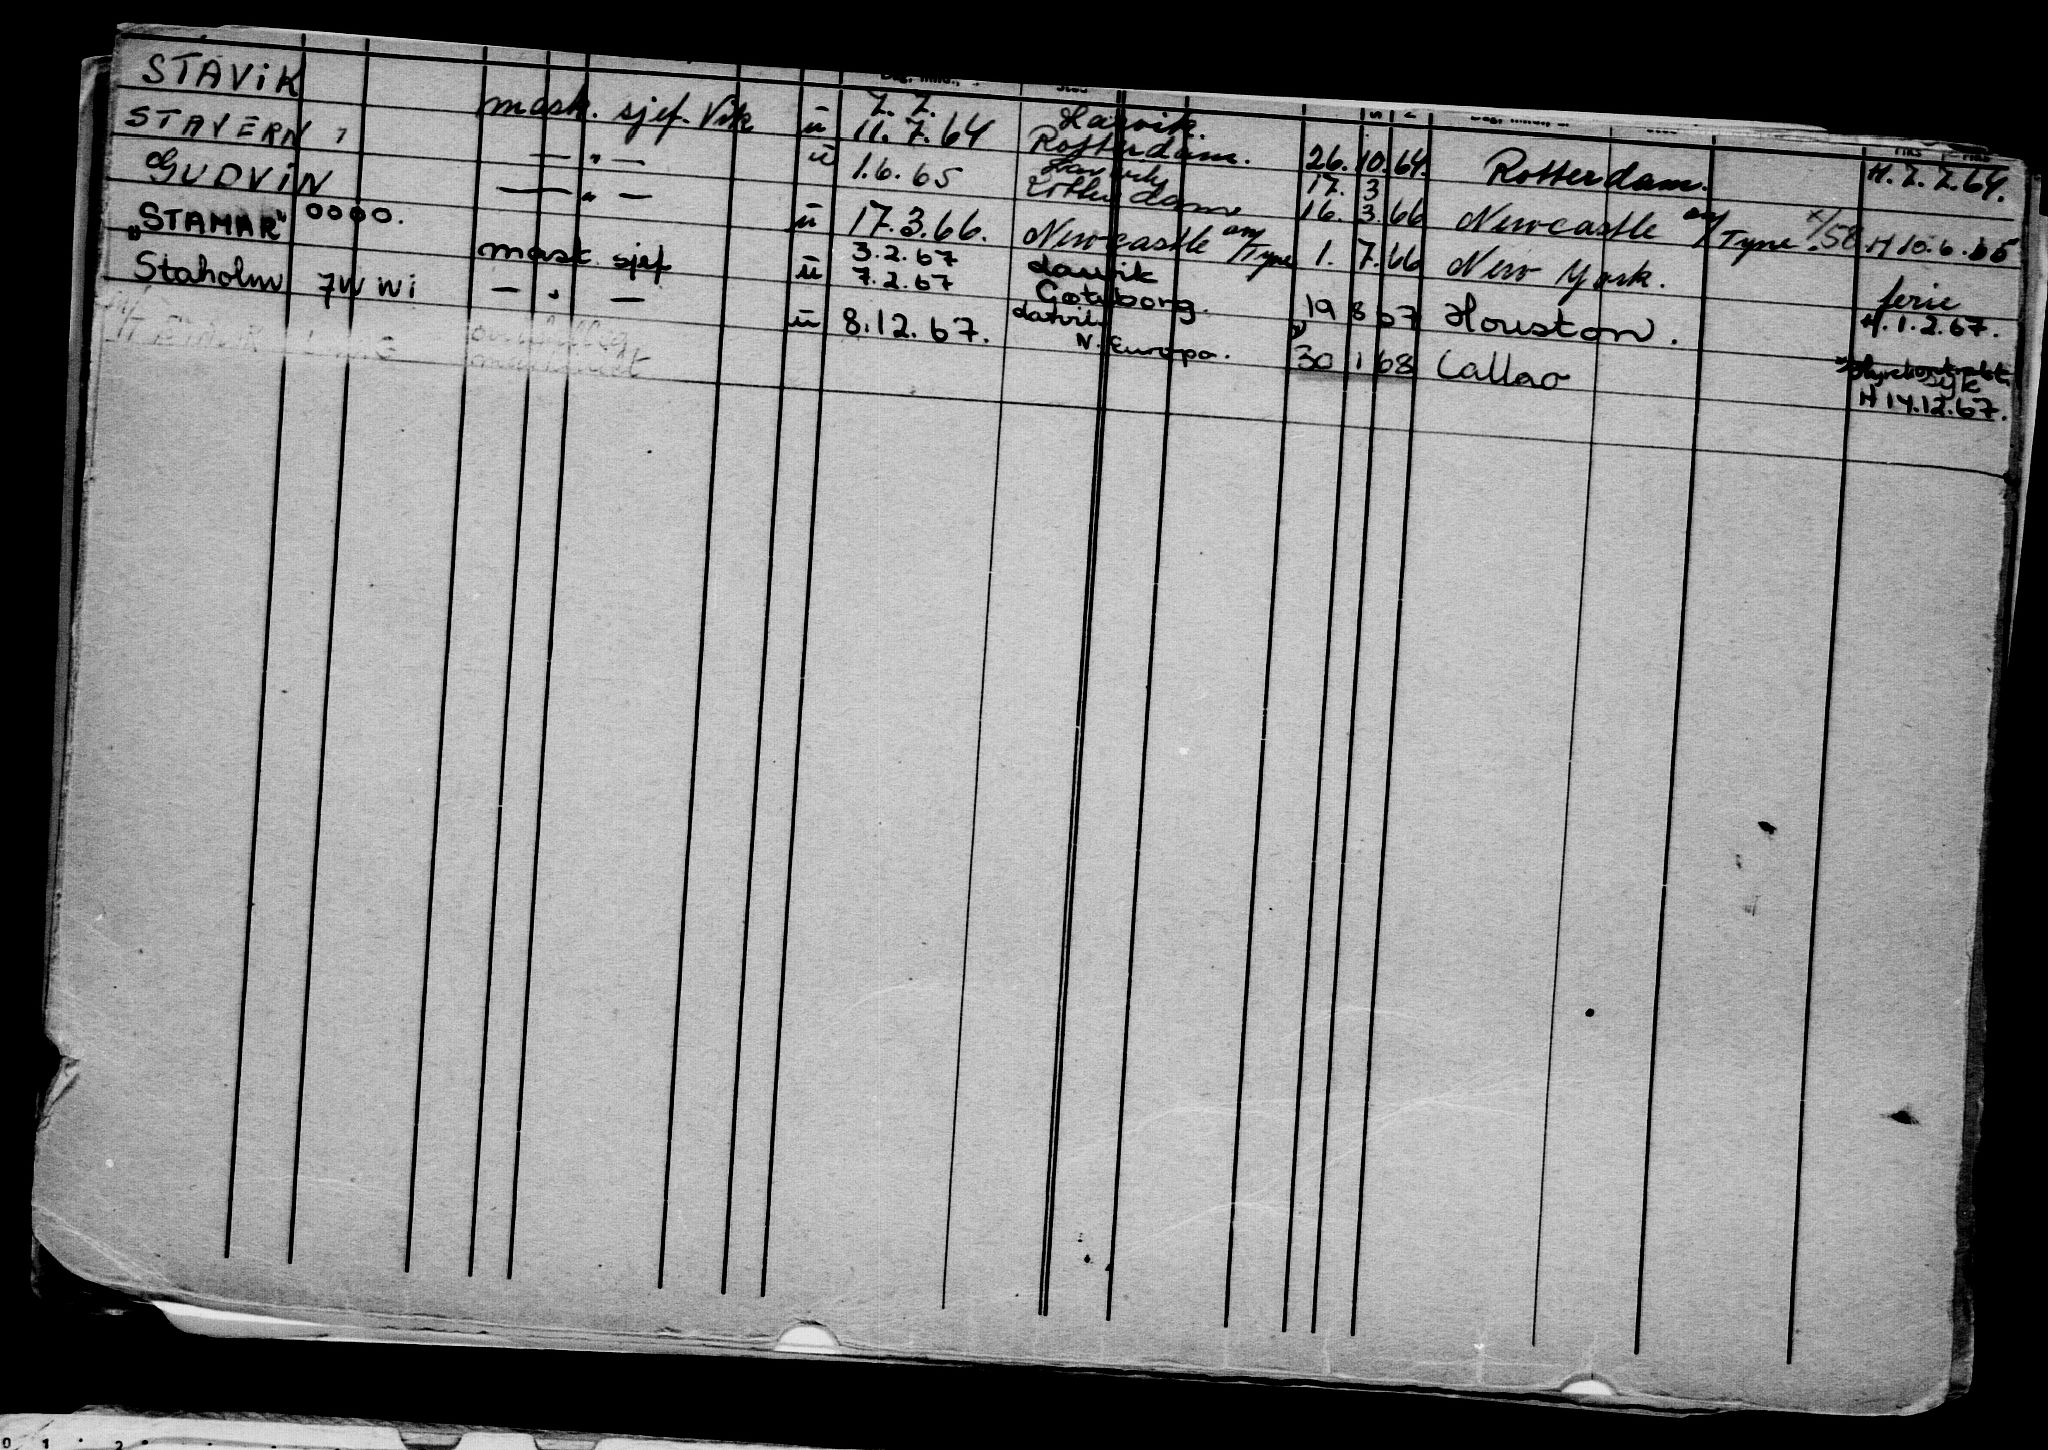 STAVIK mask. sjef. Vik ü 7.7. 11.7.64 Rotterdam. 26.10.64. Rotterdam. H. 7.7.64.
STAVERN, — " — ü 1.6.65 17. 3 16. 3. 66 Newcastle on/Tyne. x/58 H 10.6.65
GUDVIN — " — ü 17.3.66. Newcastle on/Tyne 1. 7. 66 New York. ferie
"STAMAR" 0000. mask. sjef ü 3.2.67 7.2.67 Larvik Gøteborg. 19 8 67 Houston. H. 1.2.67.
Staholm JWWI — " — ü 8.12.67. N. Europa. 30 1 68 Callao syk H 14.12.67.